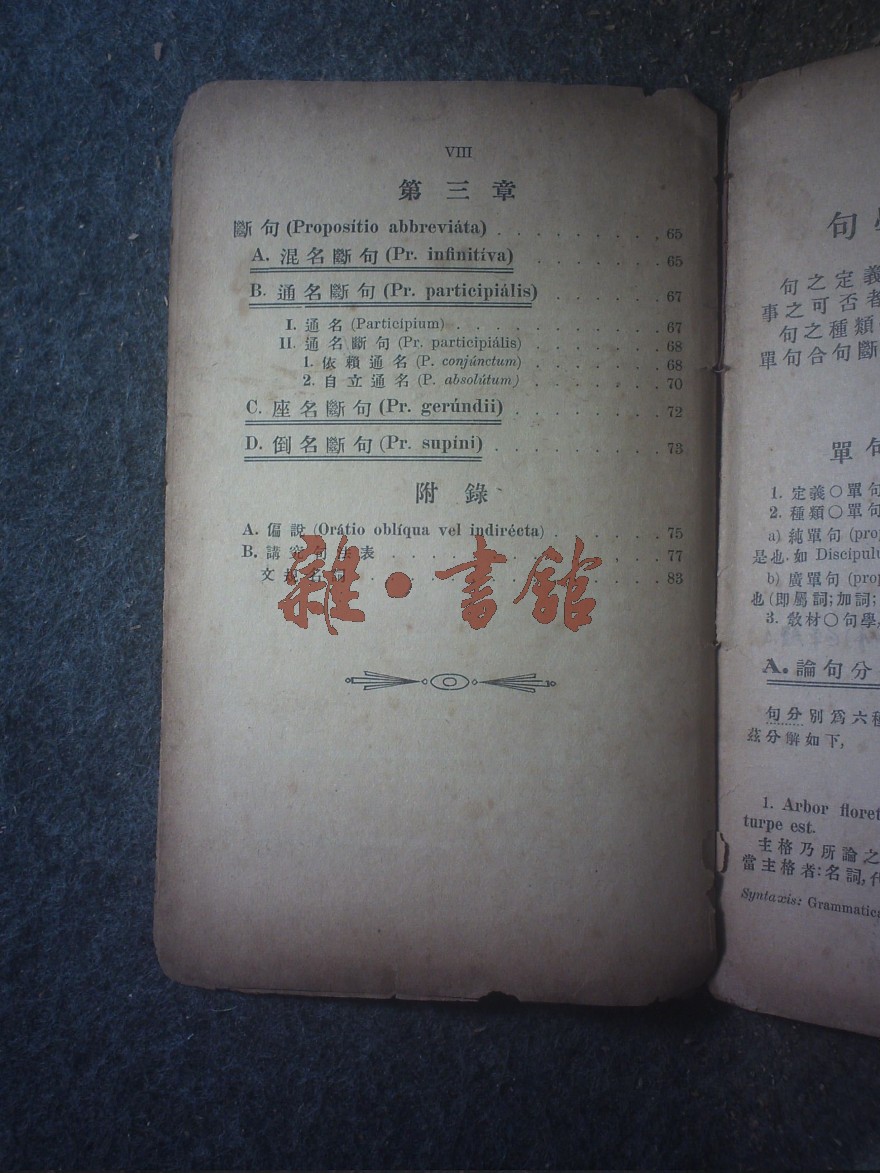 VIII
第三章
斷句 (Proposítio abbreviáta) . . . . . . . . . 65
A. 混名斷句 (Pr. infinitíva) . . . . . . . . 65
B. 通名斷句 (Pr. participiális) . . . . . . . 67
I. 通名 (Particípium) . . . . . . . . . . . 67
II. 通名斷句 (Pr. participiális) . . . . . . . 68
1. 依賴通名 (P. conjúnctum) . . . . . . . 68
2. 自立通名 (P. absolútum) . . . . . . . 70
C. 座名斷句 (Pr. gerúndii) . . . . . . . . 72
D. 倒名斷句 (Pr. supíni) . . . . . . . . . 73
附錄
A. 偏說 (Orátio oblíqua vel indirécta) . . . . . . 75
B. 講究句法表 . . . . . . . . . . . . . 77
文 名 . . . . . . . . . . . . . . 83
雜·書館
句
句之定義
事之可否者
句之種類
單句合句斷
單句
1. 定義○單句
2. 種類○單句
a) 純單句 (prop
是也. 如 Discipulu
b) 廣單句 (prop
也 (即屬詞; 加詞;
3. 敎材○句學,
A. 論句分
句分別爲六種
茲分解如下,
1. Arbor floret
turpe est.
主格乃所論之
當主格者: 名詞, 代
Syntaxis: Grammatica